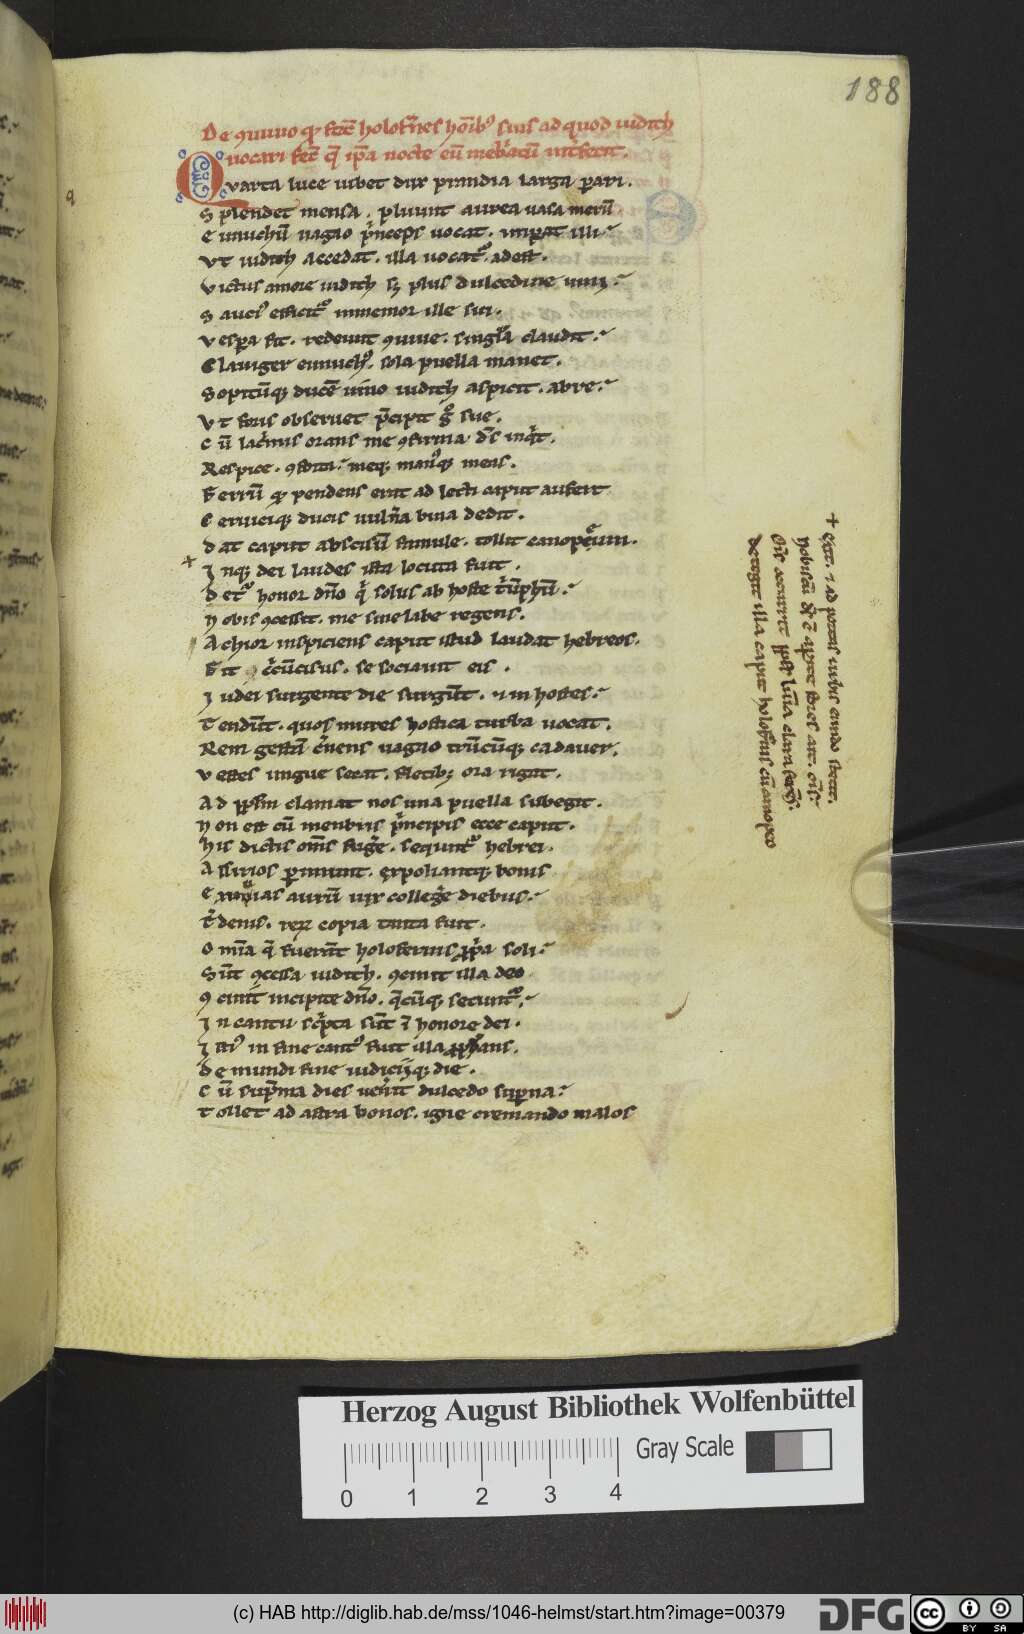 188
De ɔuiuo qͥ fec̄ holofn̄es hōībꝰ suis ad quod iudith
uocari fec̄ q̄ ip̄a nocte eū
Qvarta luce iubet dux prandia larga parari.
Splendet mensa. pluunt aurea uasa merū
Eunuchū uagao p̄nceps uocat. imꝑat illi
Vt iudith accedat. illa uocatᷣ. adest.
Victus amore iudith sꝫ plus dulcedine uini
Sauciꝰ efficitᷣ inmemor ille sui.
Vespa fit. redeunt ɔuiue. singl̄a claudit
Clauiger eunuchꝰ. sola puella manet.
Sopitūqꝫ ducē uino iudith aspicit. abre
Vt foris obseruet p̄cipit sue.
Cū lac̄mis orans me ɔfirma ds̄ inqͥt.
Respice. meqꝫ manꝰqꝫ meas.
Ferrū qͥ pendens erat ad lecti caput aufert
Ceruiciqꝫ ducis uuln̄a bina dedit.
Dat caput abscisū famule. tollit canopeum.
Inqꝫ dei laudes ista locuta fuit.
Detᷣ honor dn̄o qͥ solus ab hoste t̄ūphū
Nobis ɔcessit. me sine labe regens.
Achior inspiciens caput istud laudat hebreos.
Fit c̄cūcisus. se sociauit eis.
Iudei surgente die surgūt. ⁊ in hostes
Tendūt. quos mures hostica turba uocat.
Rem gestā c̄nens uagao trūcūqꝫ cadauer.
Vestes ungue secat. fletibꝫ ora rigat.
Ad clamat nos una puella subegit.
Non est cū menbris p̄ncipis ecce caput.
His dictis om̄s fuḡe. sequntᷣ hebrei.
Assirios ꝑimunt. expoliantqꝫ bonis
Exuuias aurū uix colleḡe diebus
T̄denis. reꝝ copia tanta fuit.
Omīa q̄ fuerūt holofernis ꝓp̄a soli
Sūt ɔcessa iudith. ɔcinit illa deo
ɔcinit incipite dn̄o. q̄cūqꝫ secuntᷣ
In cantu sc̄pta sūt ī honore dei.
Istiꝰ in fine cantꝰ fuit illa
De mundi fine iudiciiqꝫ die.
Cū sup̄ma dies uen̄it dulcedo suꝑna
Tollet ad astra bonos. igne cremando malos
+ Exit. ⁊ ad portas urbis eundo stetit.
Nobiscū ē apite fores ait. om̄s
Om̄s accurrit lum̄a clara
Detegit illa caput holof̄nis cū canopeo
Herzog August Bibliothek Wolfenbüttel
Gray Scale
0 1 2 3 4
(c) HAB http://diglib.hab.de/mss/1046-helmst/start.htm?image=00379
DFG
cc BY SA